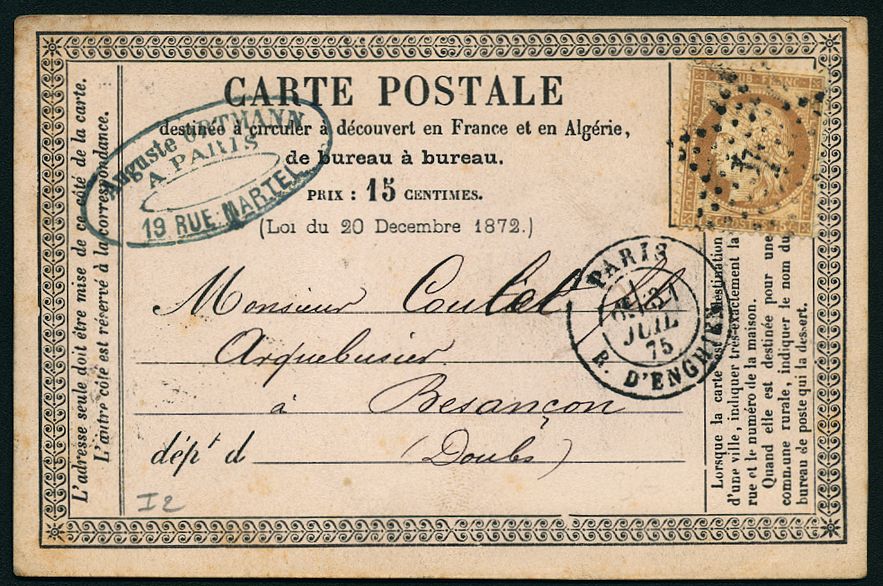 L'adresse seule doit être mise de ce côté de la carte.
L'autre côté est réservé à la correspondance.
CARTE POSTALE
destinée à circuler à découvert en France et en Algérie,
de bureau à bureau.
PRIX : 15 CENTIMES.
(Loi du 20 Decembre 1872.)
Auguste ORTMANN
A PARIS
19 RUE MARTEL
FRANC
PARIS
JUIL
75
R. D'ENGHIEN
Monsieur
Arquebusier
à Besançon
dép.t d (Doubs)
Lorsque la carte est destination
d'une ville, indiquer très-exactement la
rue et le numéro de la maison.
Quand elle est destinée pour une
commune rurale, indiquer le nom du
bureau de poste qui la dessert.
I2